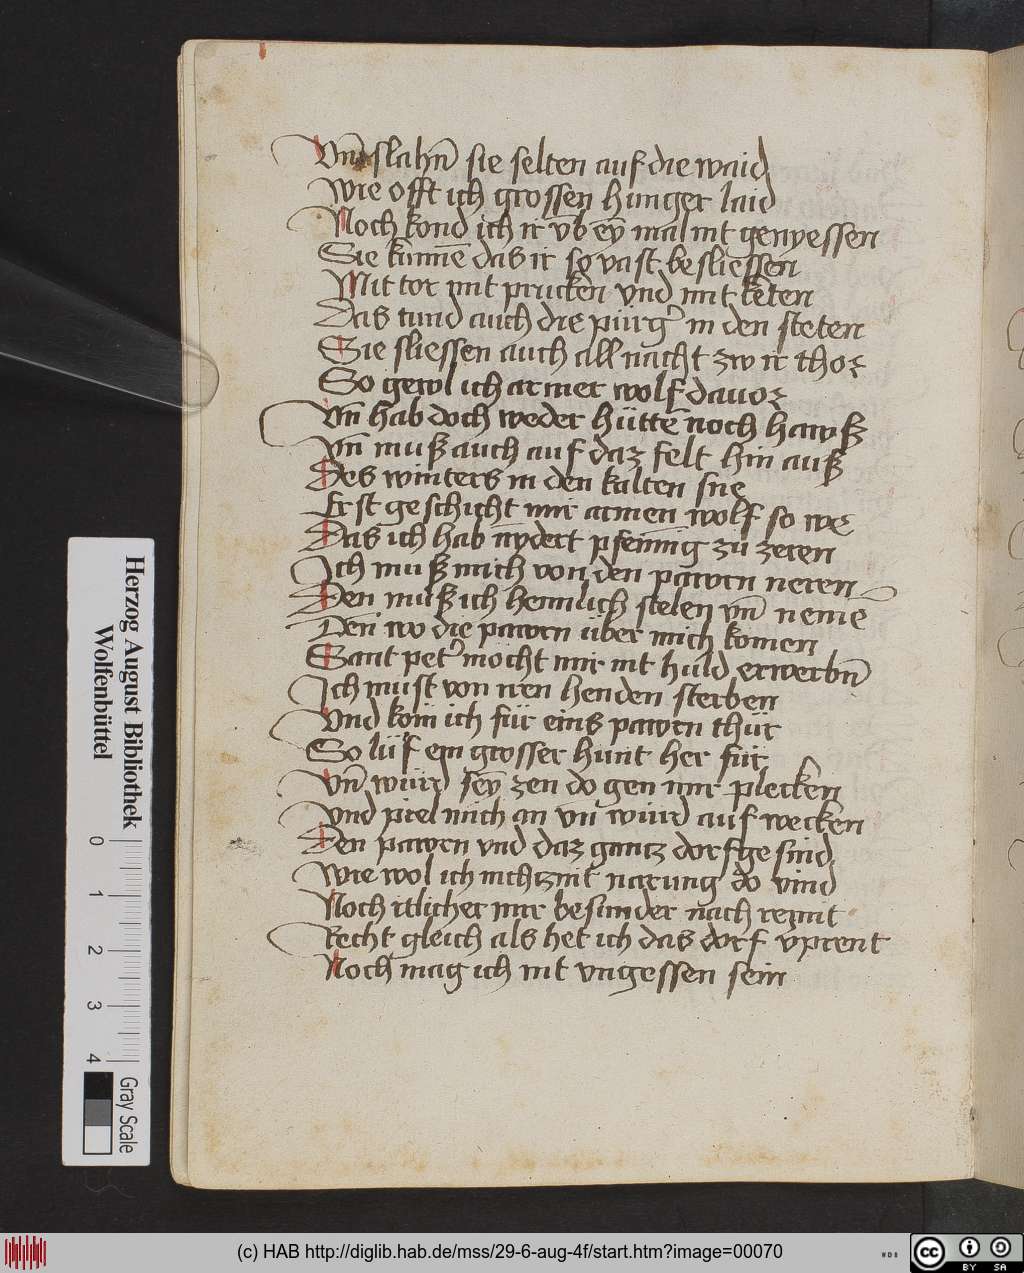 Vnd slahñ sie selten auf die waid
Wie offt ich grossen hunger laid
Noch kond ich ir vb eÿ mal nit genyessen
Sie kũnnē das ir so vast besliessen
Mit tor mit prucken vnd mit keten
Das tund auch die pürg' in den steten
Sie sliessen auch all nacht zw ir thor
So gewl ich armer wolf dauor
Vñ hab doch weder hüttē noch hawß
Vñ muß auch auf daz felt hin auß
Des winters in den kalten sne
Erst geschicht mir armen wolf so we
Das ich hab nÿdert pfennig zü zeren
Ich muß mich von den pawrn neren
Den muß ich heimlich stelen vñ nemē
Den wo die pawrn über mich komen
Sant pet' möcht mir nit huld erwerbñ
Ich must von iren henden sterben
Vnd kom ich für eins pawrn thür
So lüf ein grosser hunt her für
Vñ würd seÿ zen do gen mir plecken
Vnd piel mich an vñ würd auf wecken
Den pawrn vnd daz gantz dorfgesind
Wie wol ich nichtznit narung do vind
Noch itlicher mir besunder nach reznit
Recht gleich als het ich das dorf vprent
Noch mag ich nit vngessen sein
Herzog August Bibliothek
Wolfenbüttel
0 1 2 3 4
Gray Scale
(c) HAB http://diglib.hab.de/mss/29-6-aug-4f/start.htm?image=00070
WDB
cc BY SA